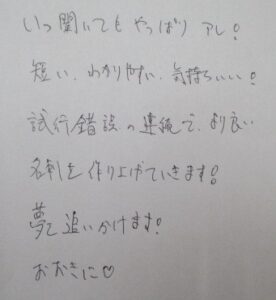 いつ聞いてもやっぱり アレ!
短い、わかりやすい、気持ちいい!
試行錯誤の連続で、より良い
名刺を作り上げていきます!
夢を追いかけます!
おおきに♡